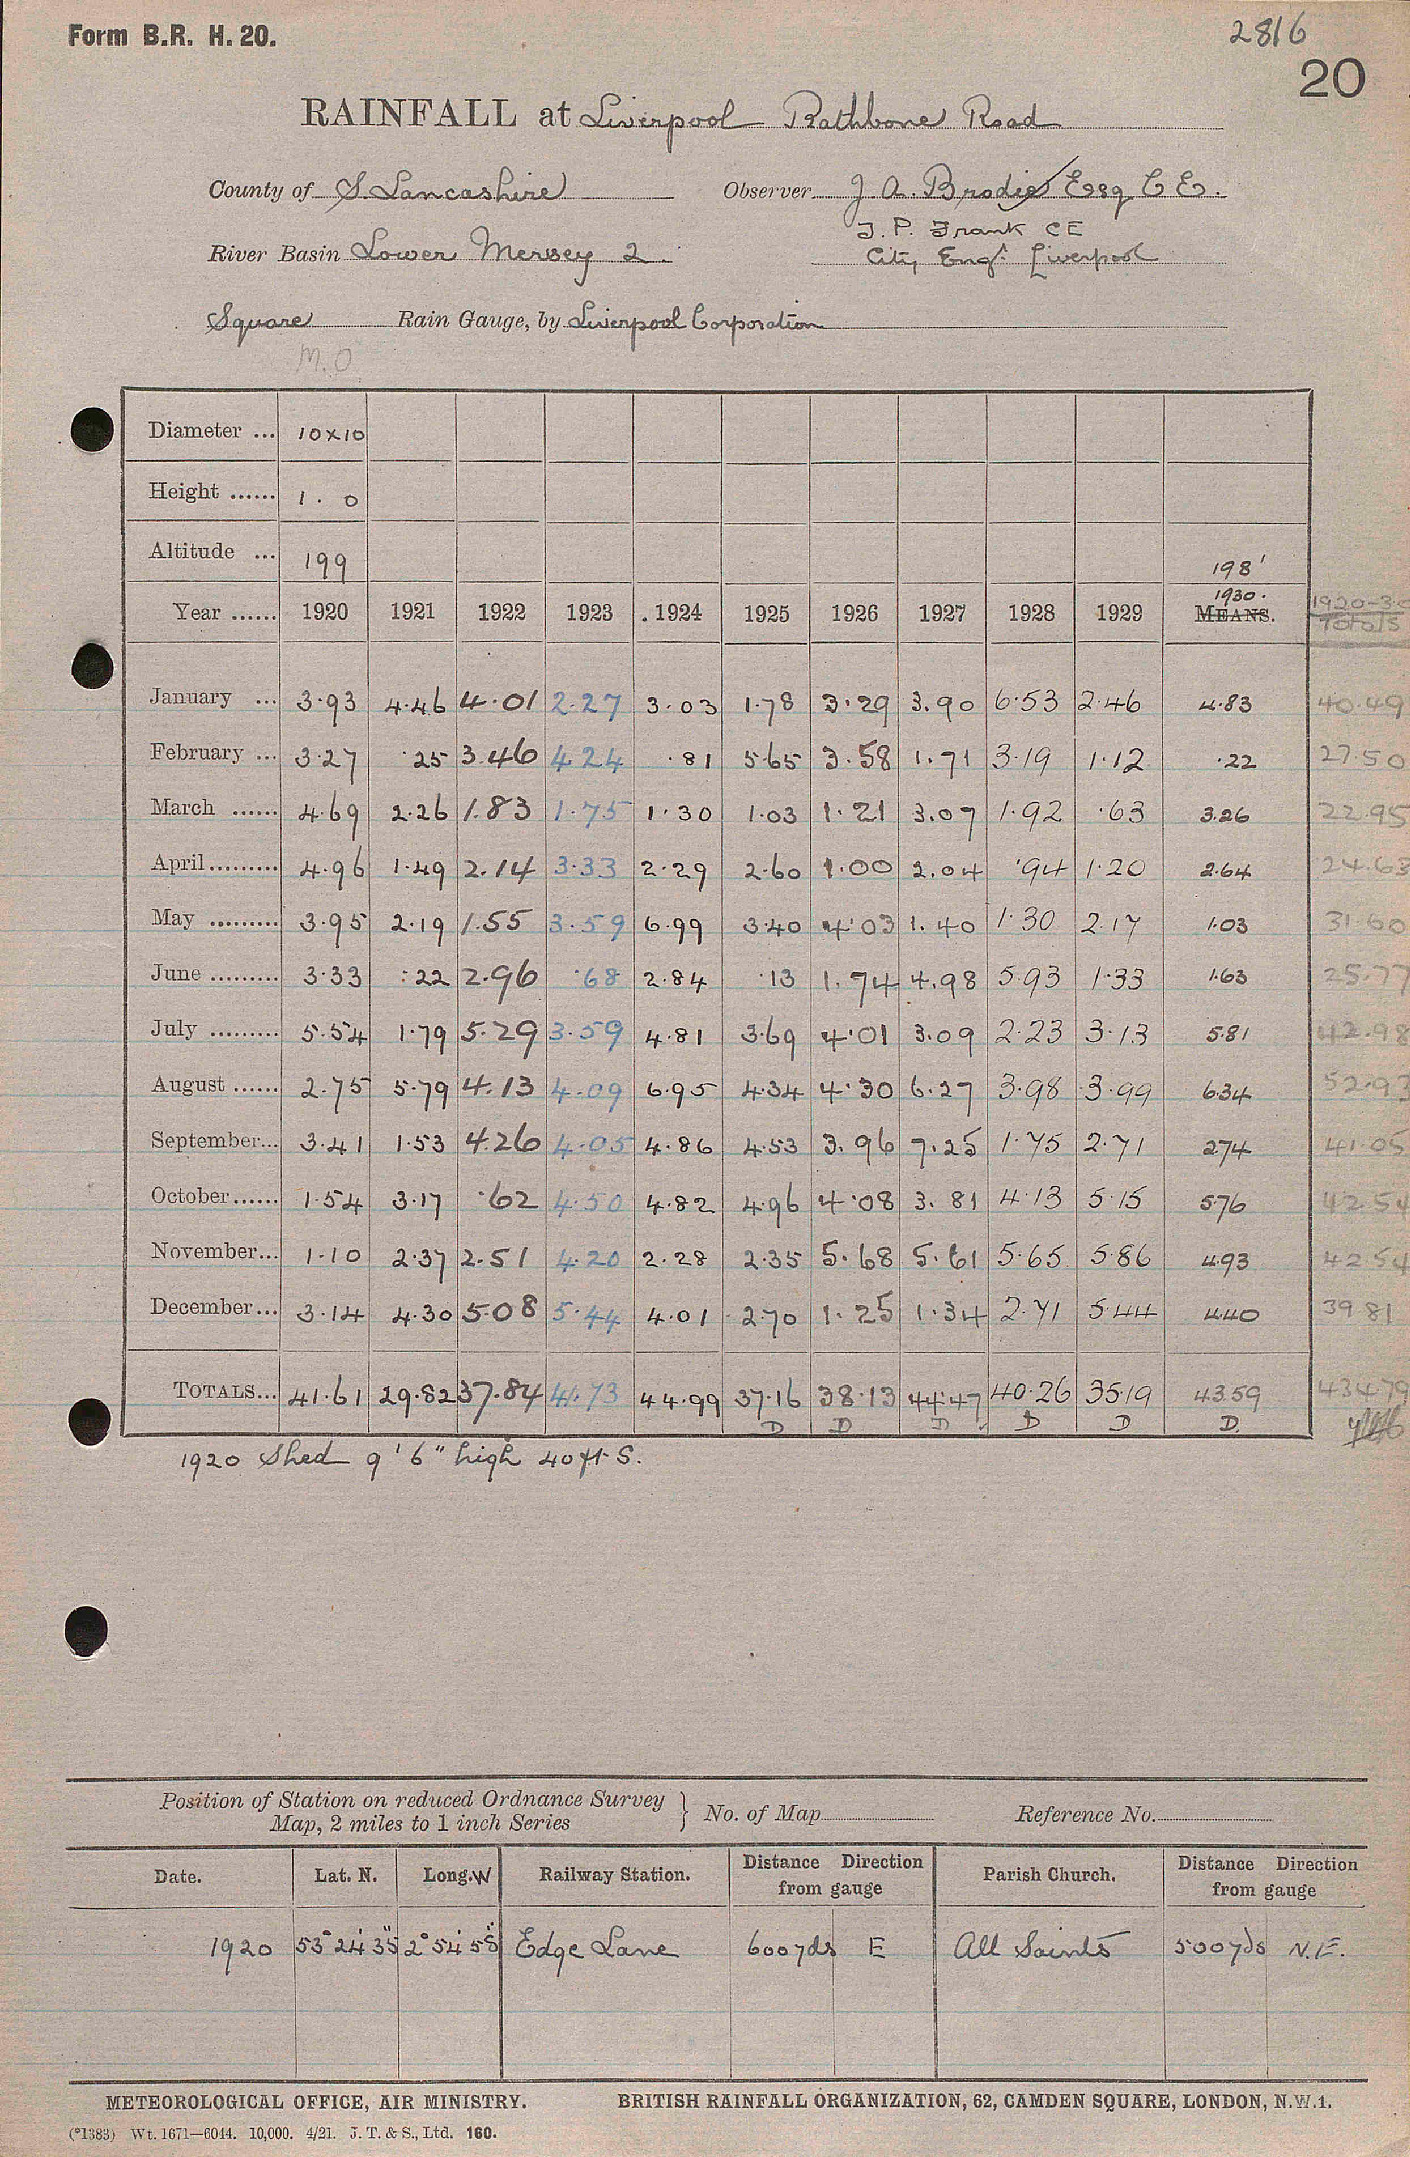 Form B.R. H. 20.
2816
20
RAINFALL at Liverpool Rathbone Road
County of S. Lancashire Observer J A. Brodie Esq C E.
J. P. Frank CE
River Basin Lower Mersey 2 City Engr. Liverpool
Square Rain Gauge, by Liverpool Corporation
M.O
Diameter ... 10x10
Height ...... 1 . 0
Altitude ... 199 198'
Year ...... 1920 1921 1922 1923 . 1924 1925 1926 1927 1928 1929 1930. MEANS. 1920-30 Totals
January ... 3.93 4.46 4.01 2.27 3.03 1.78 3.29 3.90 6.53 2.46 4.83 40.49
February ... 3.27 .25 3.46 4.24 .81 5.65 3.58 1.71 3.19 1.12 .22 27.50
March ...... 4.69 2.26 1.83 1.75 1.30 1.03 1.21 3.07 1.92 .63 3.26 22.95
April......... 4.96 1.49 2.14 3.33 2.29 2.60 1.00 2.04 .94 1.20 2.64 24.63
May ......... 3.95 2.19 1.55 3.59 6.99 3.40 4.03 1.40 1.30 2.17 1.03 31.60
June ......... 3.33 .22 2.96 .68 2.84 .13 1.74 4.98 5.93 1.33 1.63 25.77
July ......... 5.54 1.79 5.29 3.59 4.81 3.69 4.01 3.09 2.23 3.13 5.81 42.98
August ...... 2.75 5.79 4.13 4.09 6.95 4.34 4.30 6.27 3.98 3.99 6.34 52.93
September... 3.41 1.53 4.26 4.05 4.86 4.53 3.96 7.25 1.75 2.71 2.74 41.05
October...... 1.54 3.17 .62 4.50 4.82 4.96 4.08 3.81 4.13 5.15 5.76 42.54
November... 1.10 2.37 2.51 4.20 2.28 2.35 5.68 5.61 5.65 5.86 4.93 42.54
December... 3.14 4.30 5.08 5.44 4.01 2.70 1.25 1.34 2.71 5.44 4.40 39.81
TOTALS... 41.61 29.82 37.84 41.73 44.99 37.16 38.13 44.47 40.26 35.19 43.59 434.79
D D D D D D.
1920 Shed 9'6" high 40 ft S.
Position of Station on reduced Ordnance Survey
Map, 2 miles to 1 inch Series } No. of Map Reference No.
Date. Lat. N. Long.W Railway Station. Distance Direction from gauge Parish Church. Distance Direction from gauge
1920 53° 24' 35" 2° 54' 58" Edge Lane 600yds E All Saints 500yds N.E.
METEOROLOGICAL OFFICE, AIR MINISTRY. BRITISH RAINFALL ORGANIZATION, 62, CAMDEN SQUARE, LONDON, N.W.1.
(*1383) Wt. 1671—6044. 10,000. 4/21. J. T. & S., Ltd. 160.